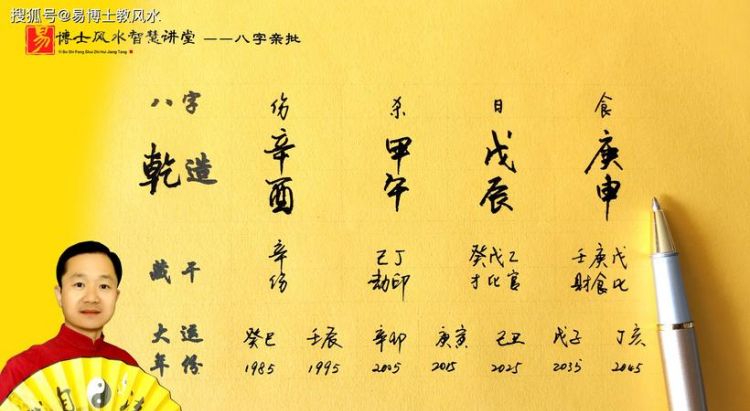 搜狐号@易博士教风水
易 博士风水智慧讲堂 ——八字亲批
Yi Bo Shi Feng Shui Zhi Hui Jiang Tang
八字 伤 杀 日 食
乾造 辛酉 甲午 戊辰 庚申
藏干 辛 己丁 癸戊乙 壬庚戊
伤 劫印 才比官 财食比
大运 癸巳 壬辰 辛卯 庚寅 己丑 戊子 丁亥
年份 1985 1995 2005 2015 2025 2035 2045